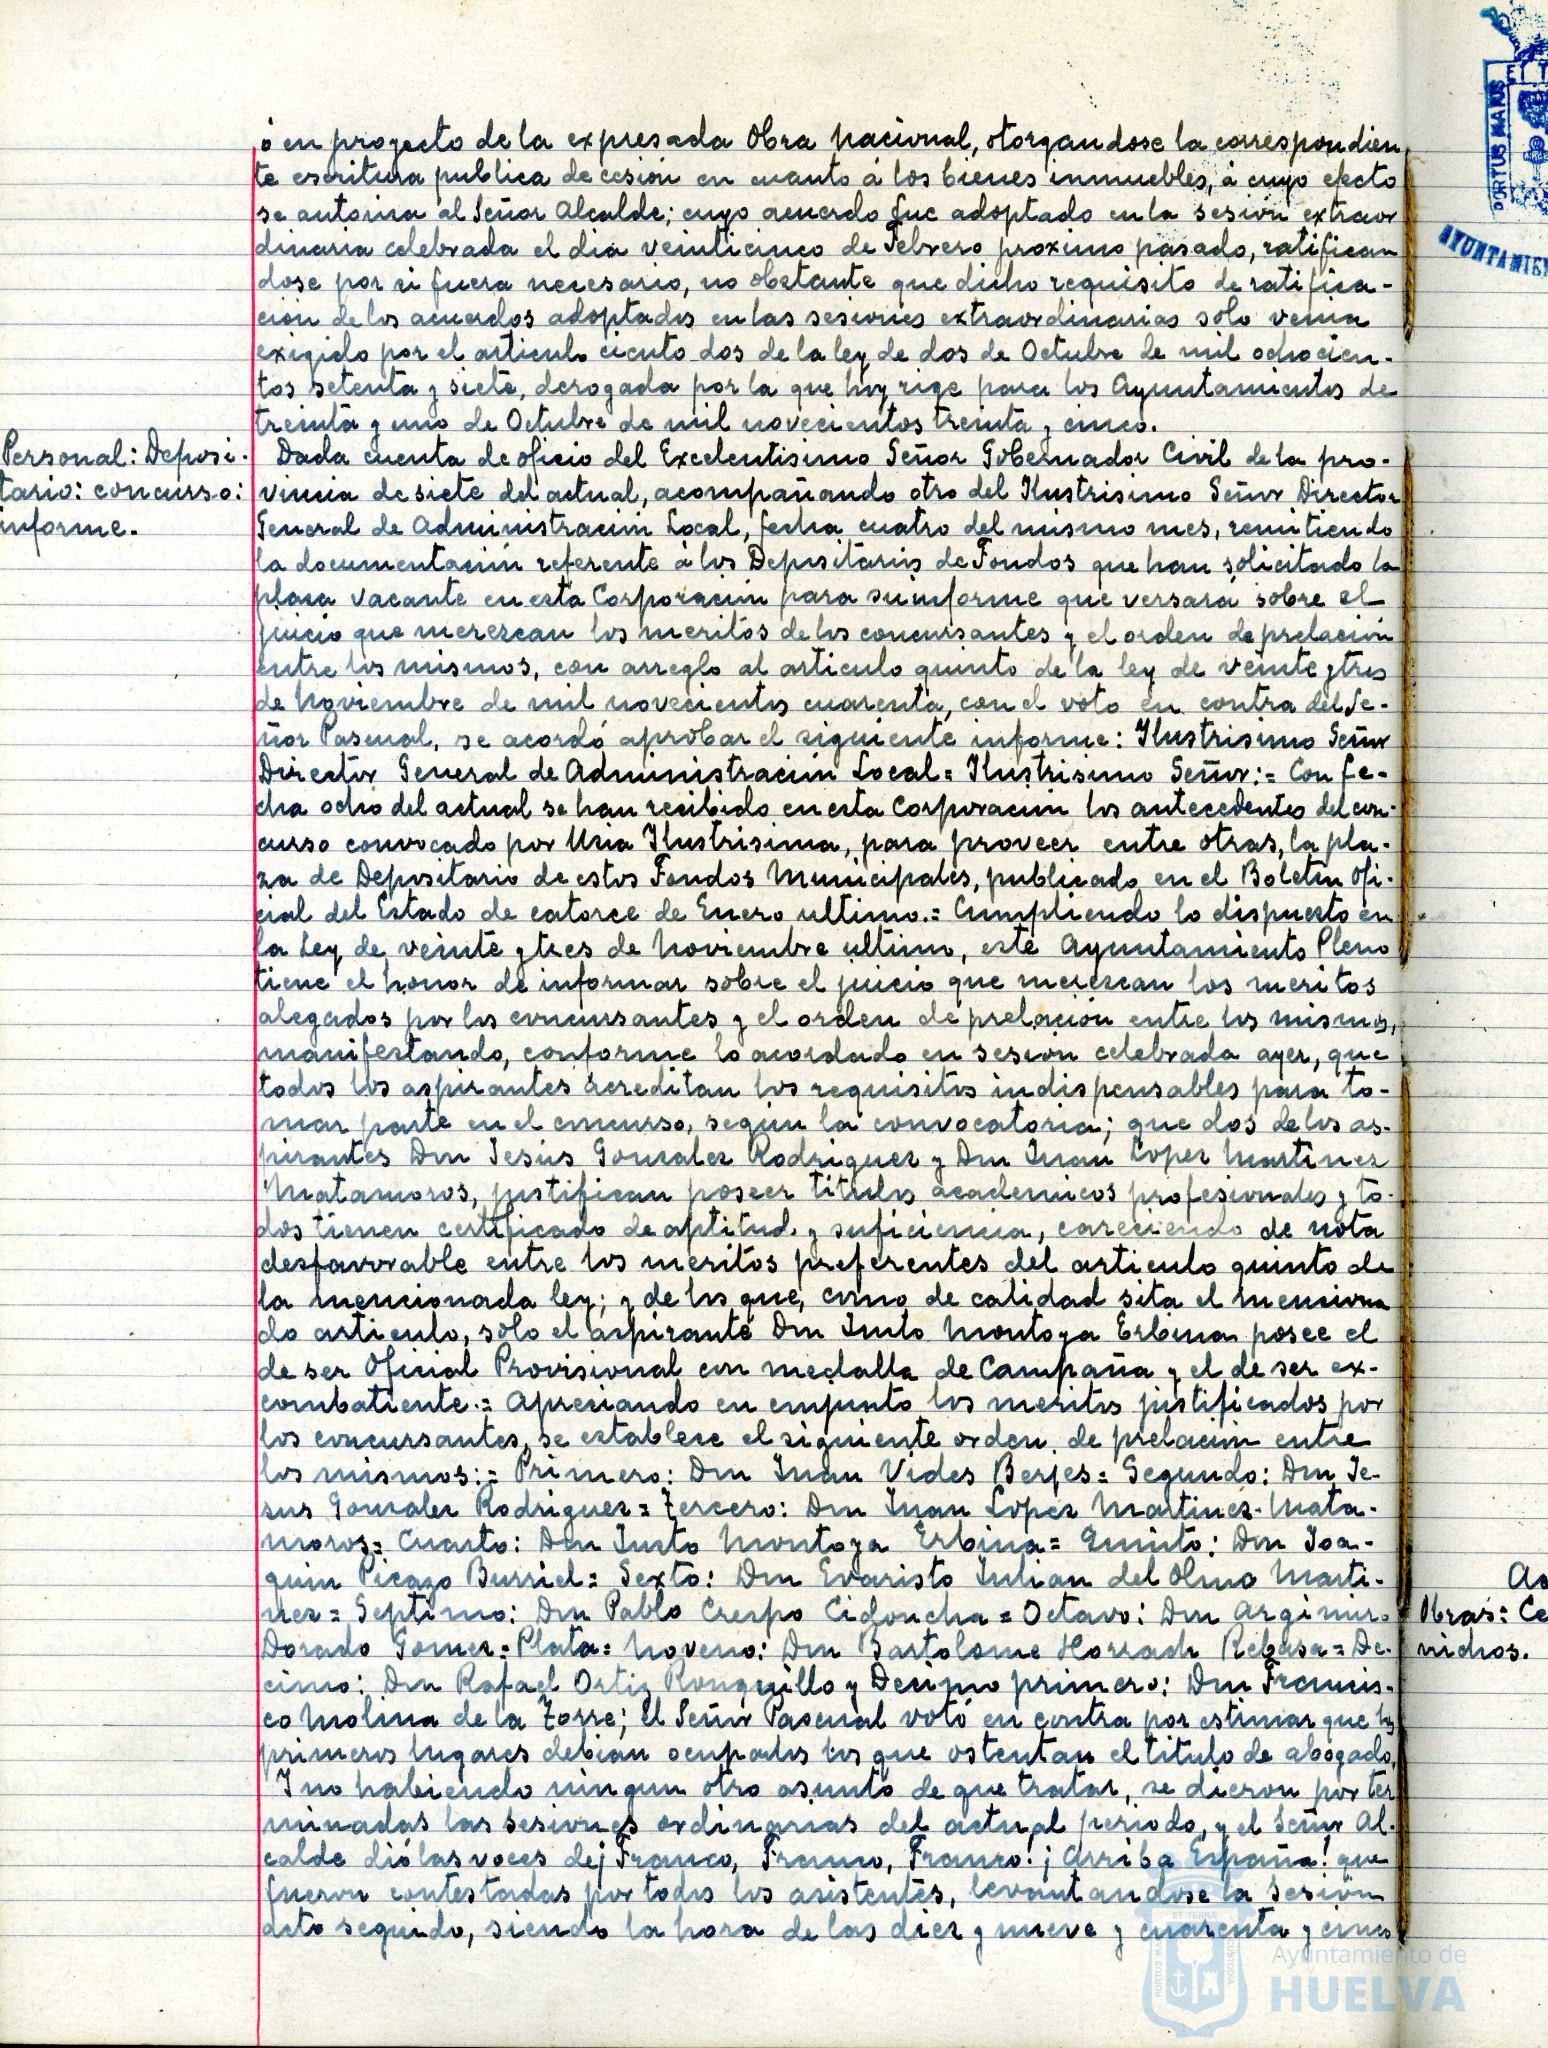 ó en proyecto de la expresada Obra Nacional, otorgandose la correspondien
te escritura publica de cesión en cuanto á los bienes inmuebles, á cuyo efecto
se autoriza al Señor Alcalde; cuyo acuerdo fue adoptado en la sesión extraor
dinaria celebrada el dia veinticinco de Febrero proximo pasado, ratifican
dose por si fuera necesario, no obstante que dicho requisito de ratifica-
ción de los acuerdos adoptados en las sesiones extraordinarias sólo venia
exigido por el articulo ciento dos de la ley de dos de Octubre de mil ochocien-
tos setenta y siete, derogada por la que hoy rige para los Ayuntamientos de
treinta y uno de Octubre de mil novecientos treinta y cinco.
Personal: Deposi-
tario: concurso:
informe.
Dada cuenta de oficio del Excelentisimo Señor Gobernador Civil de la pro-
vincia de siete del actual, acompañando otro del Ilustrisimo Señor Director
General de Administración Local, fecha cuatro del mismo mes, remitiendo
la documentación referente á los Depositarios de Fondos que han solicitado la
plaza vacante en esta Corporación para su informe que versará sobre el
juicio que merezcan los meritos de los concursantes y el orden de prelación
entre los mismos, con arreglo al articulo quinto de la ley de veinte y tres
de Noviembre de mil novecientos cuarenta, con el voto en contra del Se-
ñor Pascual, se acordó aprobar el siguiente informe: Ilustrisimo Señor
Director General de Administración Local = Ilustrisimo Señor: = Con fe-
cha ocho del actual se han recibido en esta Corporación los antecedentes del con-
curso convocado por Usia Ilustrisima, para proveer entre otras, la pla-
za de Depositario de estos Fondos Municipales, publicado en el Boletin Ofi-
cial del Estado de catorce de Enero ultimo. = Cumpliendo lo dispuesto en
la Ley de veinte y tres de Noviembre ultimo, este Ayuntamiento Pleno
tiene el honor de informar sobre el juicio que merezcan los meritos
alegados por los concursantes y el orden de prelación entre los mismos,
manifestando, conforme lo acordado en sesión celebrada ayer, que
todos los aspirantes acreditan los requisitos indispensables para to-
mar parte en el concurso, según la convocatoria; que dos de los as-
pirantes Don Jesús Gonzalez Rodriguez y Don Juan Lopez Martinez
Matamoros, justifican poseer titulos academicos profesionales y to-
dos tienen certificado de aptitud y suficiencia, careciendo de nota
desfavorable entre los meritos preferentes del articulo quinto de
la mencionada ley; y de los que, como de calidad sita el menciona
do articulo, sólo el aspirante Don Justo Montoya Erbina posee el
de ser Oficial Provisional con medalla de Campaña y el de ser ex-
combatiente. = Apreciando en conjunto los meritos justificados por
los concursantes, se establece el siguiente orden de prelación entre
los mismos: = Primero: Don Juan Vides Berjes = Segundo: Don Je-
sus Gonzalez Rodriguez = Tercero: Don Juan Lopez Martinez-Mata-
moros = Cuarto: Don Justo Montoya Erbina = Quinto: Don Joa-
quin Picazo Burriel = Sexto: Don Evaristo Julian del Olmo Marti-
nez = Septimo: Don Pablo Crespo Cidoncha = Octavo: Don Argimiro
Dorado Gomez-Plata = Noveno: Don Bartolome Horrach Rebasa = De-
cimo: Don Rafael Ortiz Ronquillo y Decimo primero: Don Francis-
co Molina de la Torre; el Señor Pascual votó en contra por estimar que los
primeros lugares debian ocuparlos los que ostentan el titulo de abogado.
Y no habiendo ningun otro asunto de que tratar, se dieron por ter
minadas las sesiones ordinarias del actual periodo, y el Señor Al-
calde dió las voces de ¡Franco, Franco, Franco! ¡Arriba España! que
fueron contestadas por todos los asistentes, levantandose la sesión
acto seguido, siendo la hora de las diez y nueve y cuarenta y cinco
PORTUS MARIS
AYUNTAMIEN
Obras: Ce
nichos.
Ayuntamiento de
HUELVA